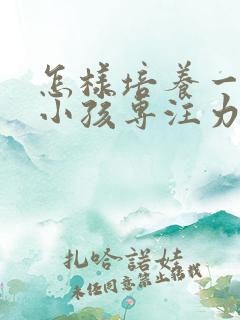 怎样培养一
小孩专注力
扎哈诺娃
未经同意禁止转载